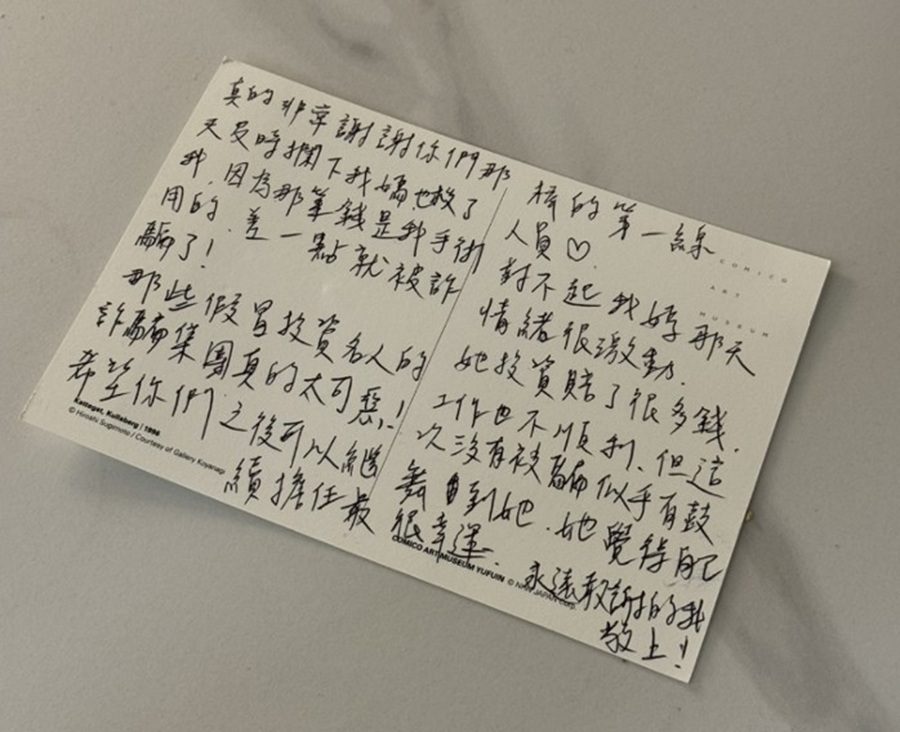 真的非常謝謝你們那
天及時攔下我媽、也救了
我.因為那筆錢是我手術
用的.差一點就被詐
騙了!
那些假冒投資名人的
詐騙集團真的太可惡!
希望你們之後可以繼
續擔任最
棒的第一線
人員♡.
對不起我媽那天
情緒很激動.
她投資賠了很多錢.
工作也不順利.但這
次沒有被騙似乎有鼓
舞到她.她覺得自己
很幸運.
永遠敢的我
敬上!
Kattegat, Kullaberg | 1996
© Hiroshi Sugimoto / Courtesy of Gallery Koyanagi
COMICO
ART
MUSEUM
COMICO ART MUSEUM YUFUIN © NHN JAPAN Corp.